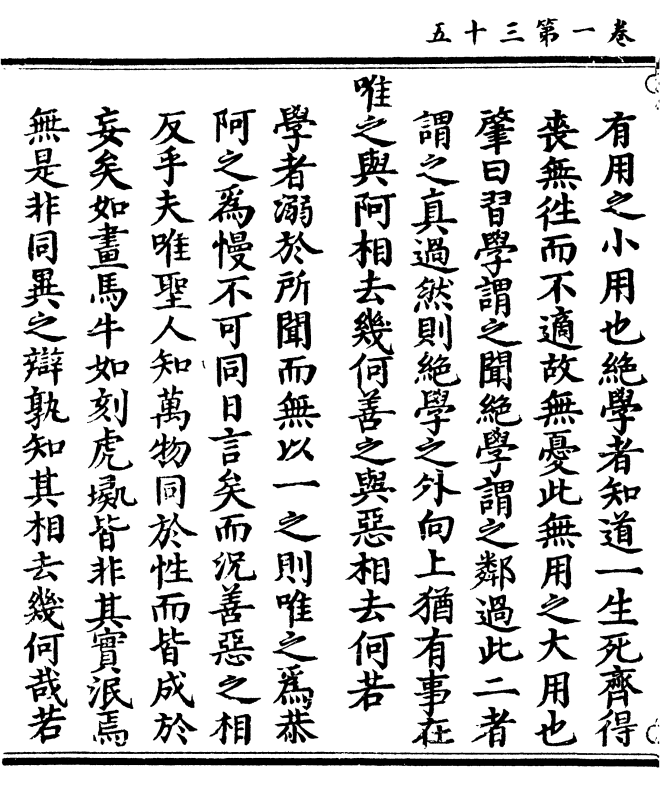 卷一第三十五
有用之小用也絕學者知道一生死齊得
喪無徃而不適故無憂此無用之大用也
肇曰習學謂之聞絕學謂之鄰過此二者
謂之真過然則絕學之外向上猶有事在
唯之與阿相去幾何善之與惡相去何若
學者溺於所聞而無以一之則唯之爲恭
阿之爲慢不可同日言矣而況善惡之相
反乎夫唯聖人知萬物同於性而皆成於
妄矣如畫馬牛如刻虎彘皆非其實泯焉
無是非同異之辯孰知其相去幾何哉若